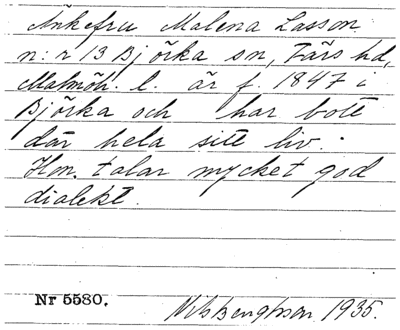 Änkefru Malena Lasson
n:r 13 Björka sn, Färs hd,
Malmöh. l. är f. 1847 i
Björka och har bott
där hela sitt liv.
Hon talar mycket god
dialekt.
Nr 5580. Nils Bengtsson 1935.